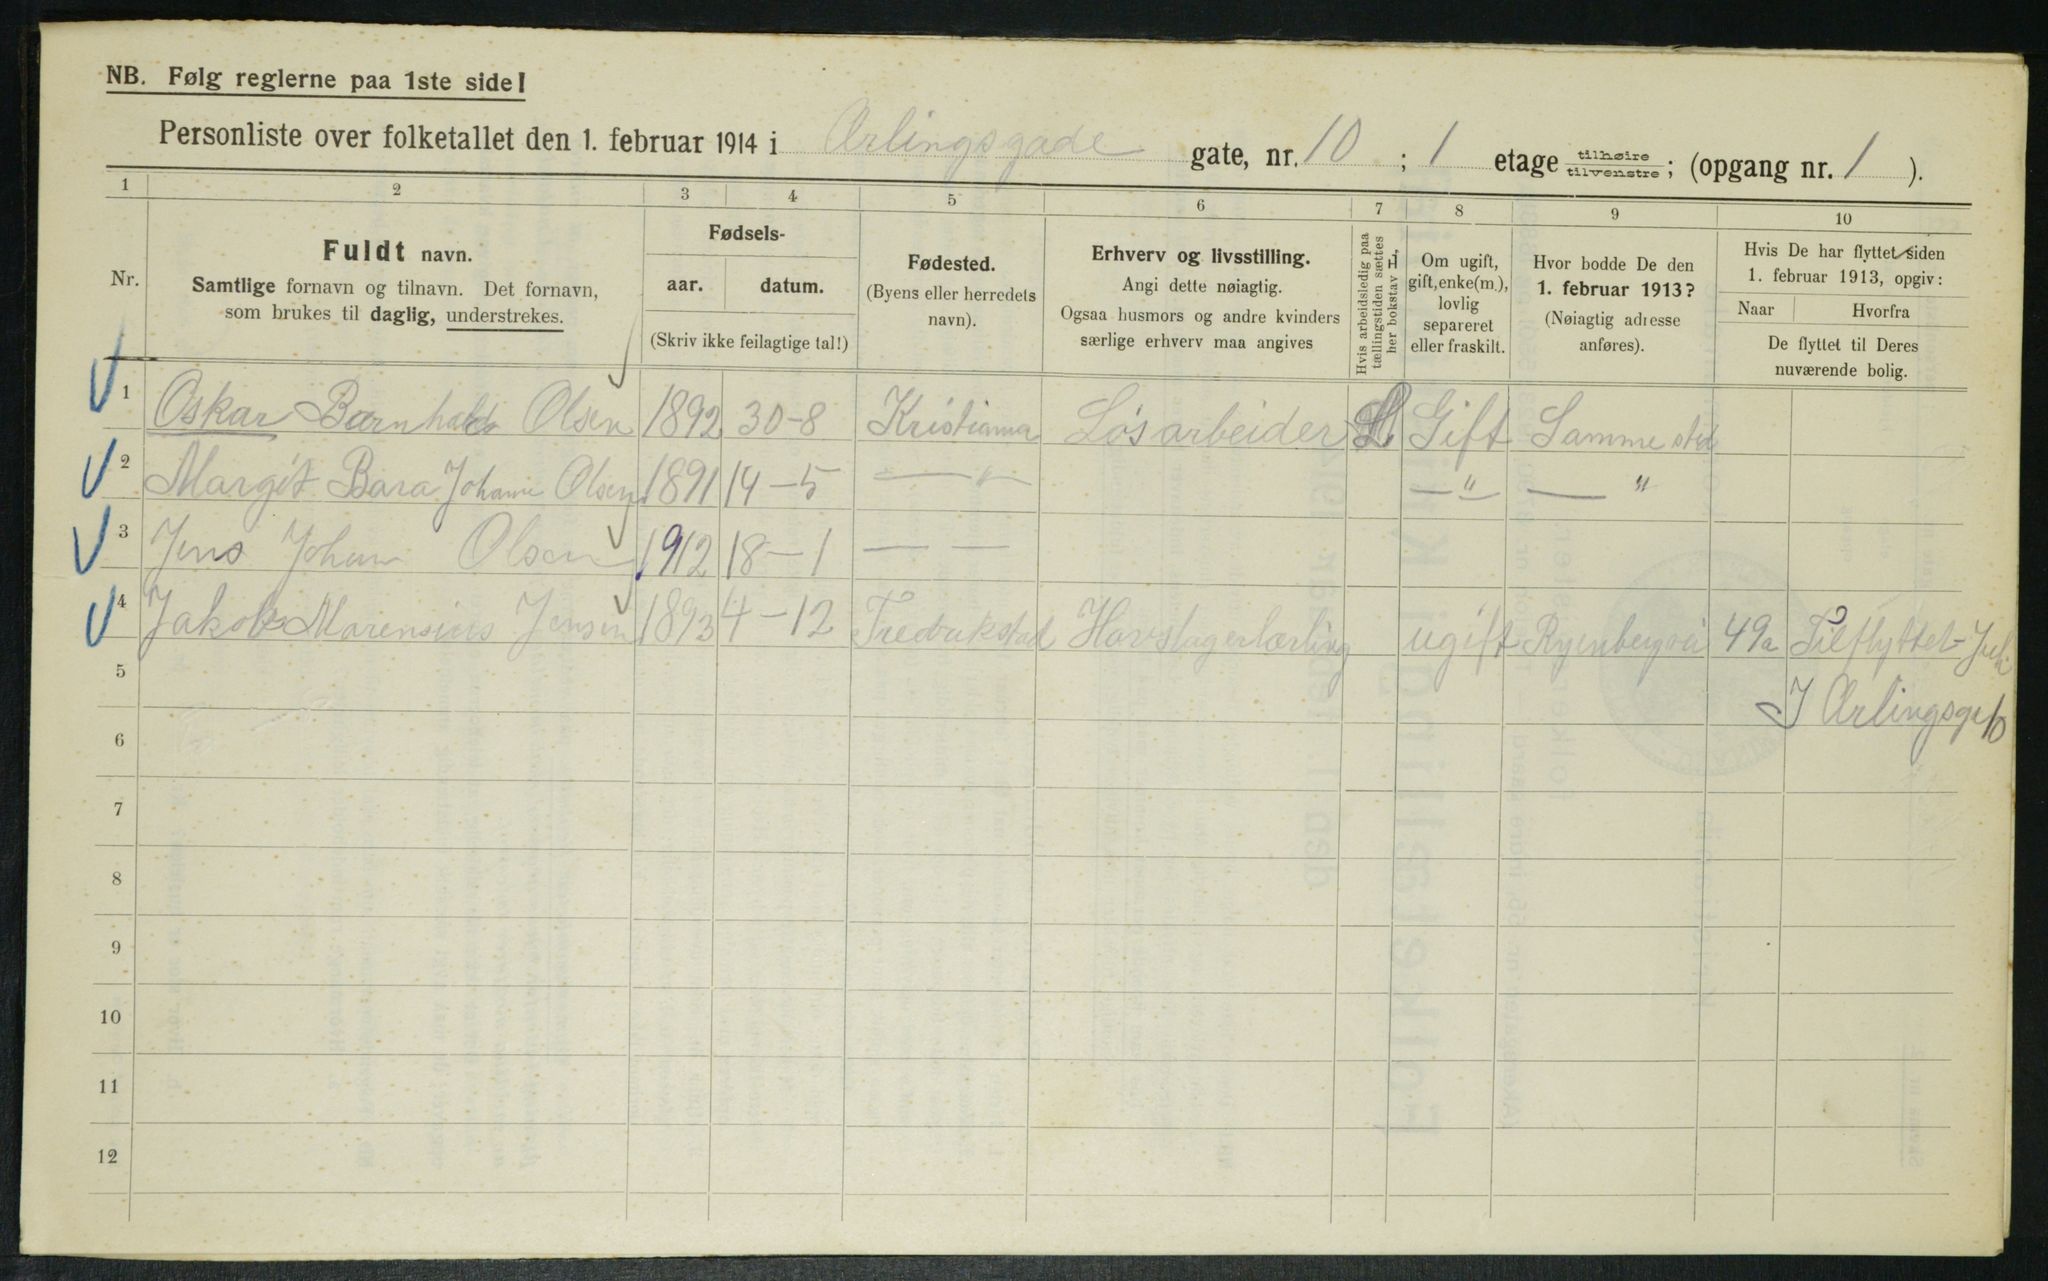 NB. Følg reglerne paa 1ste side!
Personliste over folketallet den 1. februar 1914 i Arlingsgade gate, nr. 10 ; 1 etage tilhøire tilvenstre ; (opgang nr. 1 ).
1 2 3 4 5 6 7 8 9 10
Nr.
Fuldt navn.
Samtlige fornavn og tilnavn. Det fornavn,
som brukes til daglig, understrekes.
Fødsels-
aar. datum.
(Skriv ikke feilagtige tal!)
Fødested.
(Byens eller herredets
navn).
Erhverv og livsstilling.
Angi dette nøiagtig.
Ogsaa husmors og andre kvinders
særlige erhverv maa angives
Hvis arbeidsledig paa
tællingstiden sættes
her bokstav L.
Om ugift,
gift, enke(m.),
lovlig
separeret
eller fraskilt.
Hvor bodde De den
1. februar 1913?
(Nøiagtig adresse
anføres).
Hvis De har flyttet siden
1. februar 1913, opgiv:
Naar Hvorfra
De flyttet til Deres
nuværende bolig.
1 Oskar Olsen 1892 30-8 Kristiania Løsarbeider L Gift Samme sted
2 Margit Bara Johanne Olsen 1891 14-5 — " — — " — — "
3 Jens Johan Olsen 1912 18-1 — —
4 Jakob Marensius Jensen 1893 4-12 Fredrikstad Hovslagerlærling ugift 49a Tilflyttet-
5 I Arlingsga 10
6
7
8
9
10
11
12